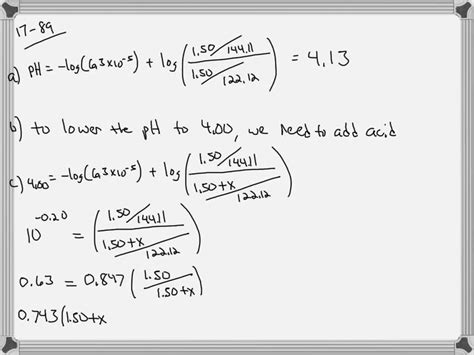 17-89
a) pH = -log(6.3×10^-5) + log((1.50/144.11)/(1.50/122.12)) = 4.13
b) to lower the pH to 4.00, we need to add acid
c) 4.00 = -log(6.3×10^-5) + log((1.50/144.11)/(1.50+x/122.12))
10^-0.20 = ((1.50/144.11)/(1.50+x/122.12))
0.63 = 0.847(1.50/1.50+x)
0.743(1.50+x